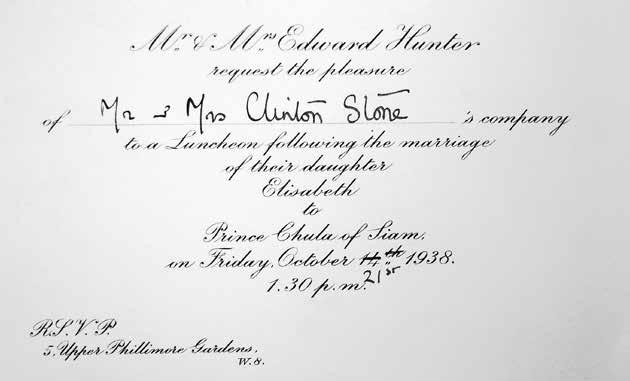 Mr. & Mrs Edward Hunter
request the pleasure
of Mr & Mrs Clinton Stone 's company
to a Luncheon following the marriage
of their daughter
Elisabeth
to
Prince Chula of Siam,
on Friday, October 14th 1938.
21st
1.30 p.m.
R.S.V.P.
5, Upper Phillimore Gardens,
W.8.